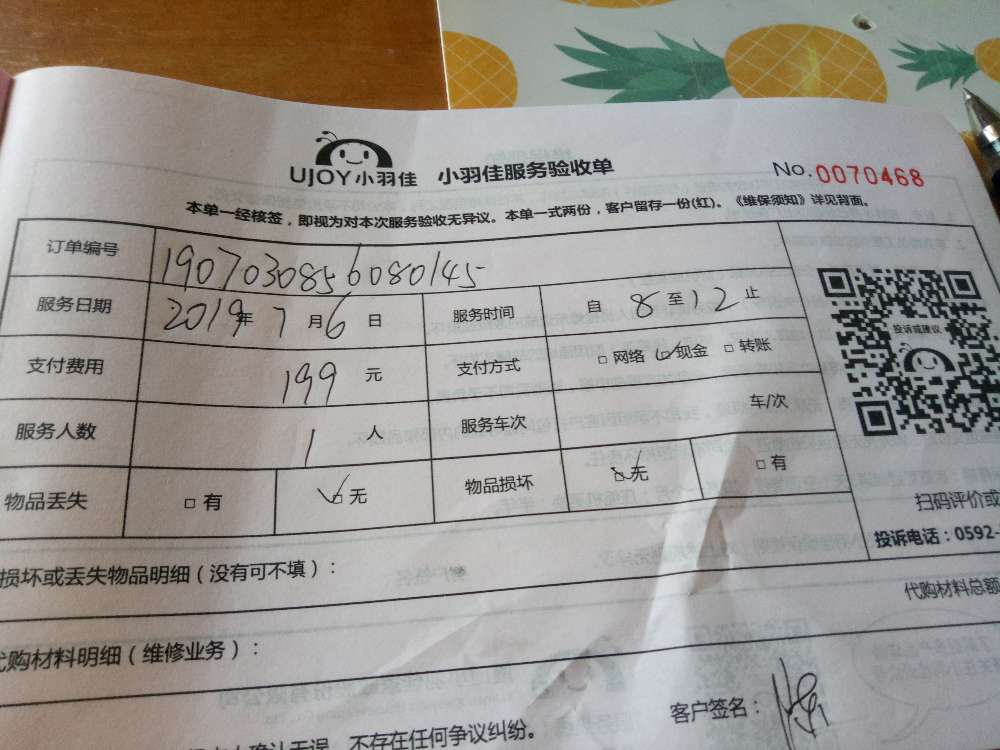 UJOY小羽佳 小羽佳服务验收单 No.0070468
本单一经核签，即视为对本次服务验收无异议。本单一式两份，客户留存一份(红)。《维保须知》详见背面。
订单编号 1907030856080145
服务日期 2019年7月6日 服务时间 自8至12止
投诉或建议
支付费用 199元 支付方式 □网络 ☑现金 □转账
服务人数 1人 服务车次 车/次
物品丢失 □有 ☑无 物品损坏 ☑无 □有
扫码评价或
投诉电话：0592-
损坏或丢失物品明细（没有可不填）：
代购材料总额
代购材料明细（维修业务）：
客户签名：
确认无误，不存在任何争议纠纷。